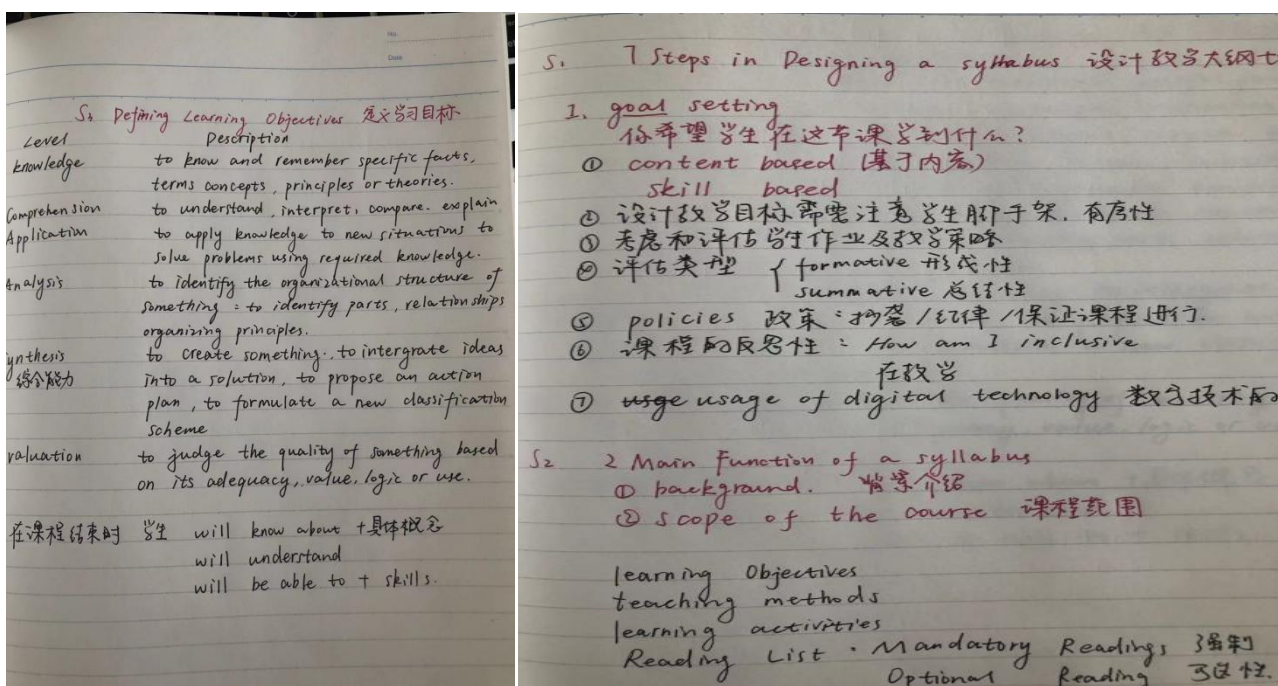 No.
Date
S3 Defining Learning Objectives 定义学习目标
Level Description
knowledge to know and remember specific facts,
terms concepts, principles or theories.
Comprehension to understand, interpret, compare. explain
Application to apply knowledge to new situations to
solve problems using required knowledge.
Analysis to identify the organizational structure of
something : to identify parts, relationships
organizing principles.
ynthesis to create something, to intergrate ideas
综合能力 into a solution, to propose an action
plan, to formulate a new classification
scheme
valuation to judge the quality of something based
on its adequacy, value, logic or use.
在课程结束时 学生 will know about +具体概念
will understand
will be able to + skills.
S1 7 Steps in Designing a syllabus 设计教学大纲七
1. goal setting
你希望学生在这节课学到什么?
① content based (基于内容)
skill based
② 设计教学目标需要注意学生脚手架.
③ 考虑和评估学生作业及教学策略
④ 评估类型 { formative 形成性
summative 总结性
⑤ policies 政策:抄袭/纪律/保证课程进行.
⑥ 课程的反思性: How am I inclusive
在教学
⑦ usage of digital technology 数字技术的
S2 2 Main Function of a syllabus
① background. 背景介绍
② scope of the course 课程范围
learning Objectives
teaching methods
learning activities
Reading List · Mandatory Readings 强制
Optional Reading 可选性.